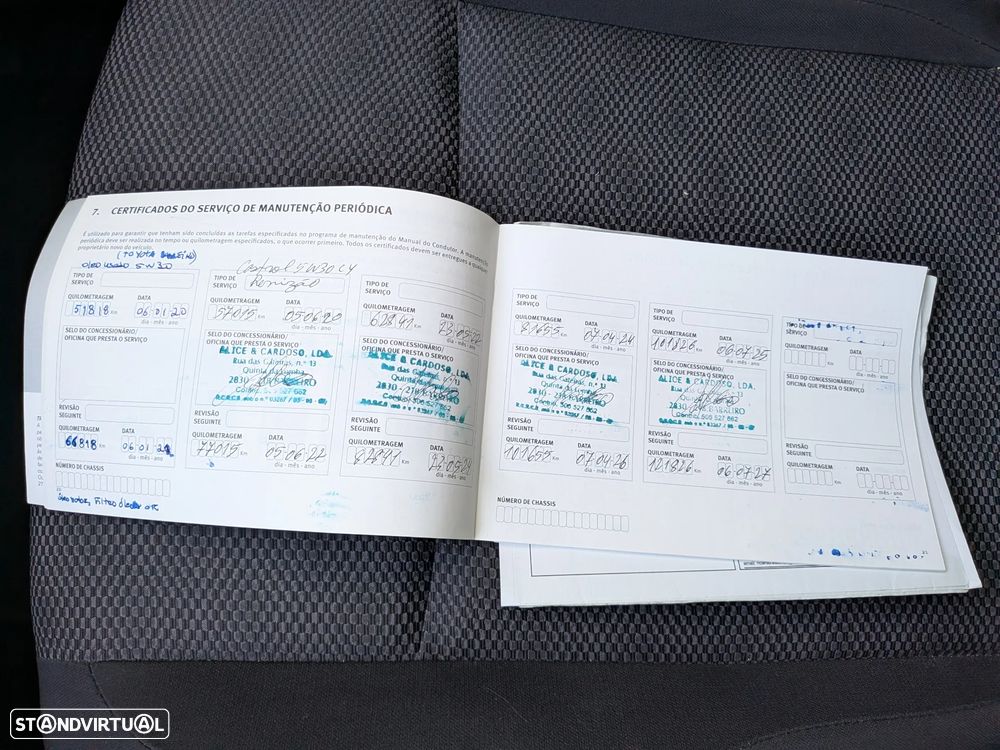 7. CERTIFICADOS DO SERVIÇO DE MANUTENÇÃO PERIÓDICA
É utilizado para garantir que tenham sido concluídas as tarefas especificadas no programa de manutenção do Manual do Condutor. A manutenção
periódica deve ser realizada no tempo ou quilometragem especificados, o que ocorrer primeiro. Todos os certificados devem ser entregues a qualquer
proprietário novo do veículo.
5W30
TIPO DE
SERVIÇO
QUILOMETRAGEM DATA
51818 Km 06 01 20
dia - mês - ano
SELO DO CONCESSIONÁRIO/
OFICINA QUE PRESTA O SERVIÇO
REVISÃO
SEGUINTE
QUILOMETRAGEM DATA
66818 Km 06 01 21
dia - mês - ano
NÚMERO DE CHASSIS
Castrol 5W30 C4
TIPO DE
SERVIÇO
QUILOMETRAGEM DATA
57015 Km 05 06 20
dia - mês - ano
SELO DO CONCESSIONÁRIO/
OFICINA QUE PRESTA O SERVIÇO
ALICE & CARDOSO, LDA.
REVISÃO
SEGUINTE
QUILOMETRAGEM DATA
77015 Km 05 06 22
dia - mês - ano
TIPO DE
SERVIÇO
QUILOMETRAGEM DATA
62841 Km 23 05 22
dia - mês - ano
SELO DO CONCESSIONÁRIO/
OFICINA QUE PRESTA O SERVIÇO
ALICE & CARDOSO, LDA.
REVISÃO
SEGUINTE
QUILOMETRAGEM DATA
82841 Km 23 05 24
dia - mês - ano
TIPO DE
SERVIÇO
QUILOMETRAGEM DATA
81655 Km 07 04 24
dia - mês - ano
SELO DO CONCESSIONÁRIO/
OFICINA QUE PRESTA O SERVIÇO
ALICE & CARDOSO, LDA.
REVISÃO
SEGUINTE
QUILOMETRAGEM DATA
101655 Km 07 04 26
dia - mês - ano
NÚMERO DE CHASSIS
TIPO DE
SERVIÇO
QUILOMETRAGEM DATA
101826 Km 06 07 25
dia - mês - ano
SELO DO CONCESSIONÁRIO/
OFICINA QUE PRESTA O SERVIÇO
ALICE & CARDOSO, LDA.
REVISÃO
SEGUINTE
QUILOMETRAGEM DATA
121826 Km 06 07 27
dia - mês - ano
TIPO DE
SERVIÇO
QUILOMETRAGEM DATA
Km
dia - mês - ano
SELO DO CONCESSIONÁRIO/
OFICINA QUE PRESTA O SERVIÇO
REVISÃO
SEGUINTE
QUILOMETRAGEM DATA
Km
dia - mês - ano
STANDVIRTUAL